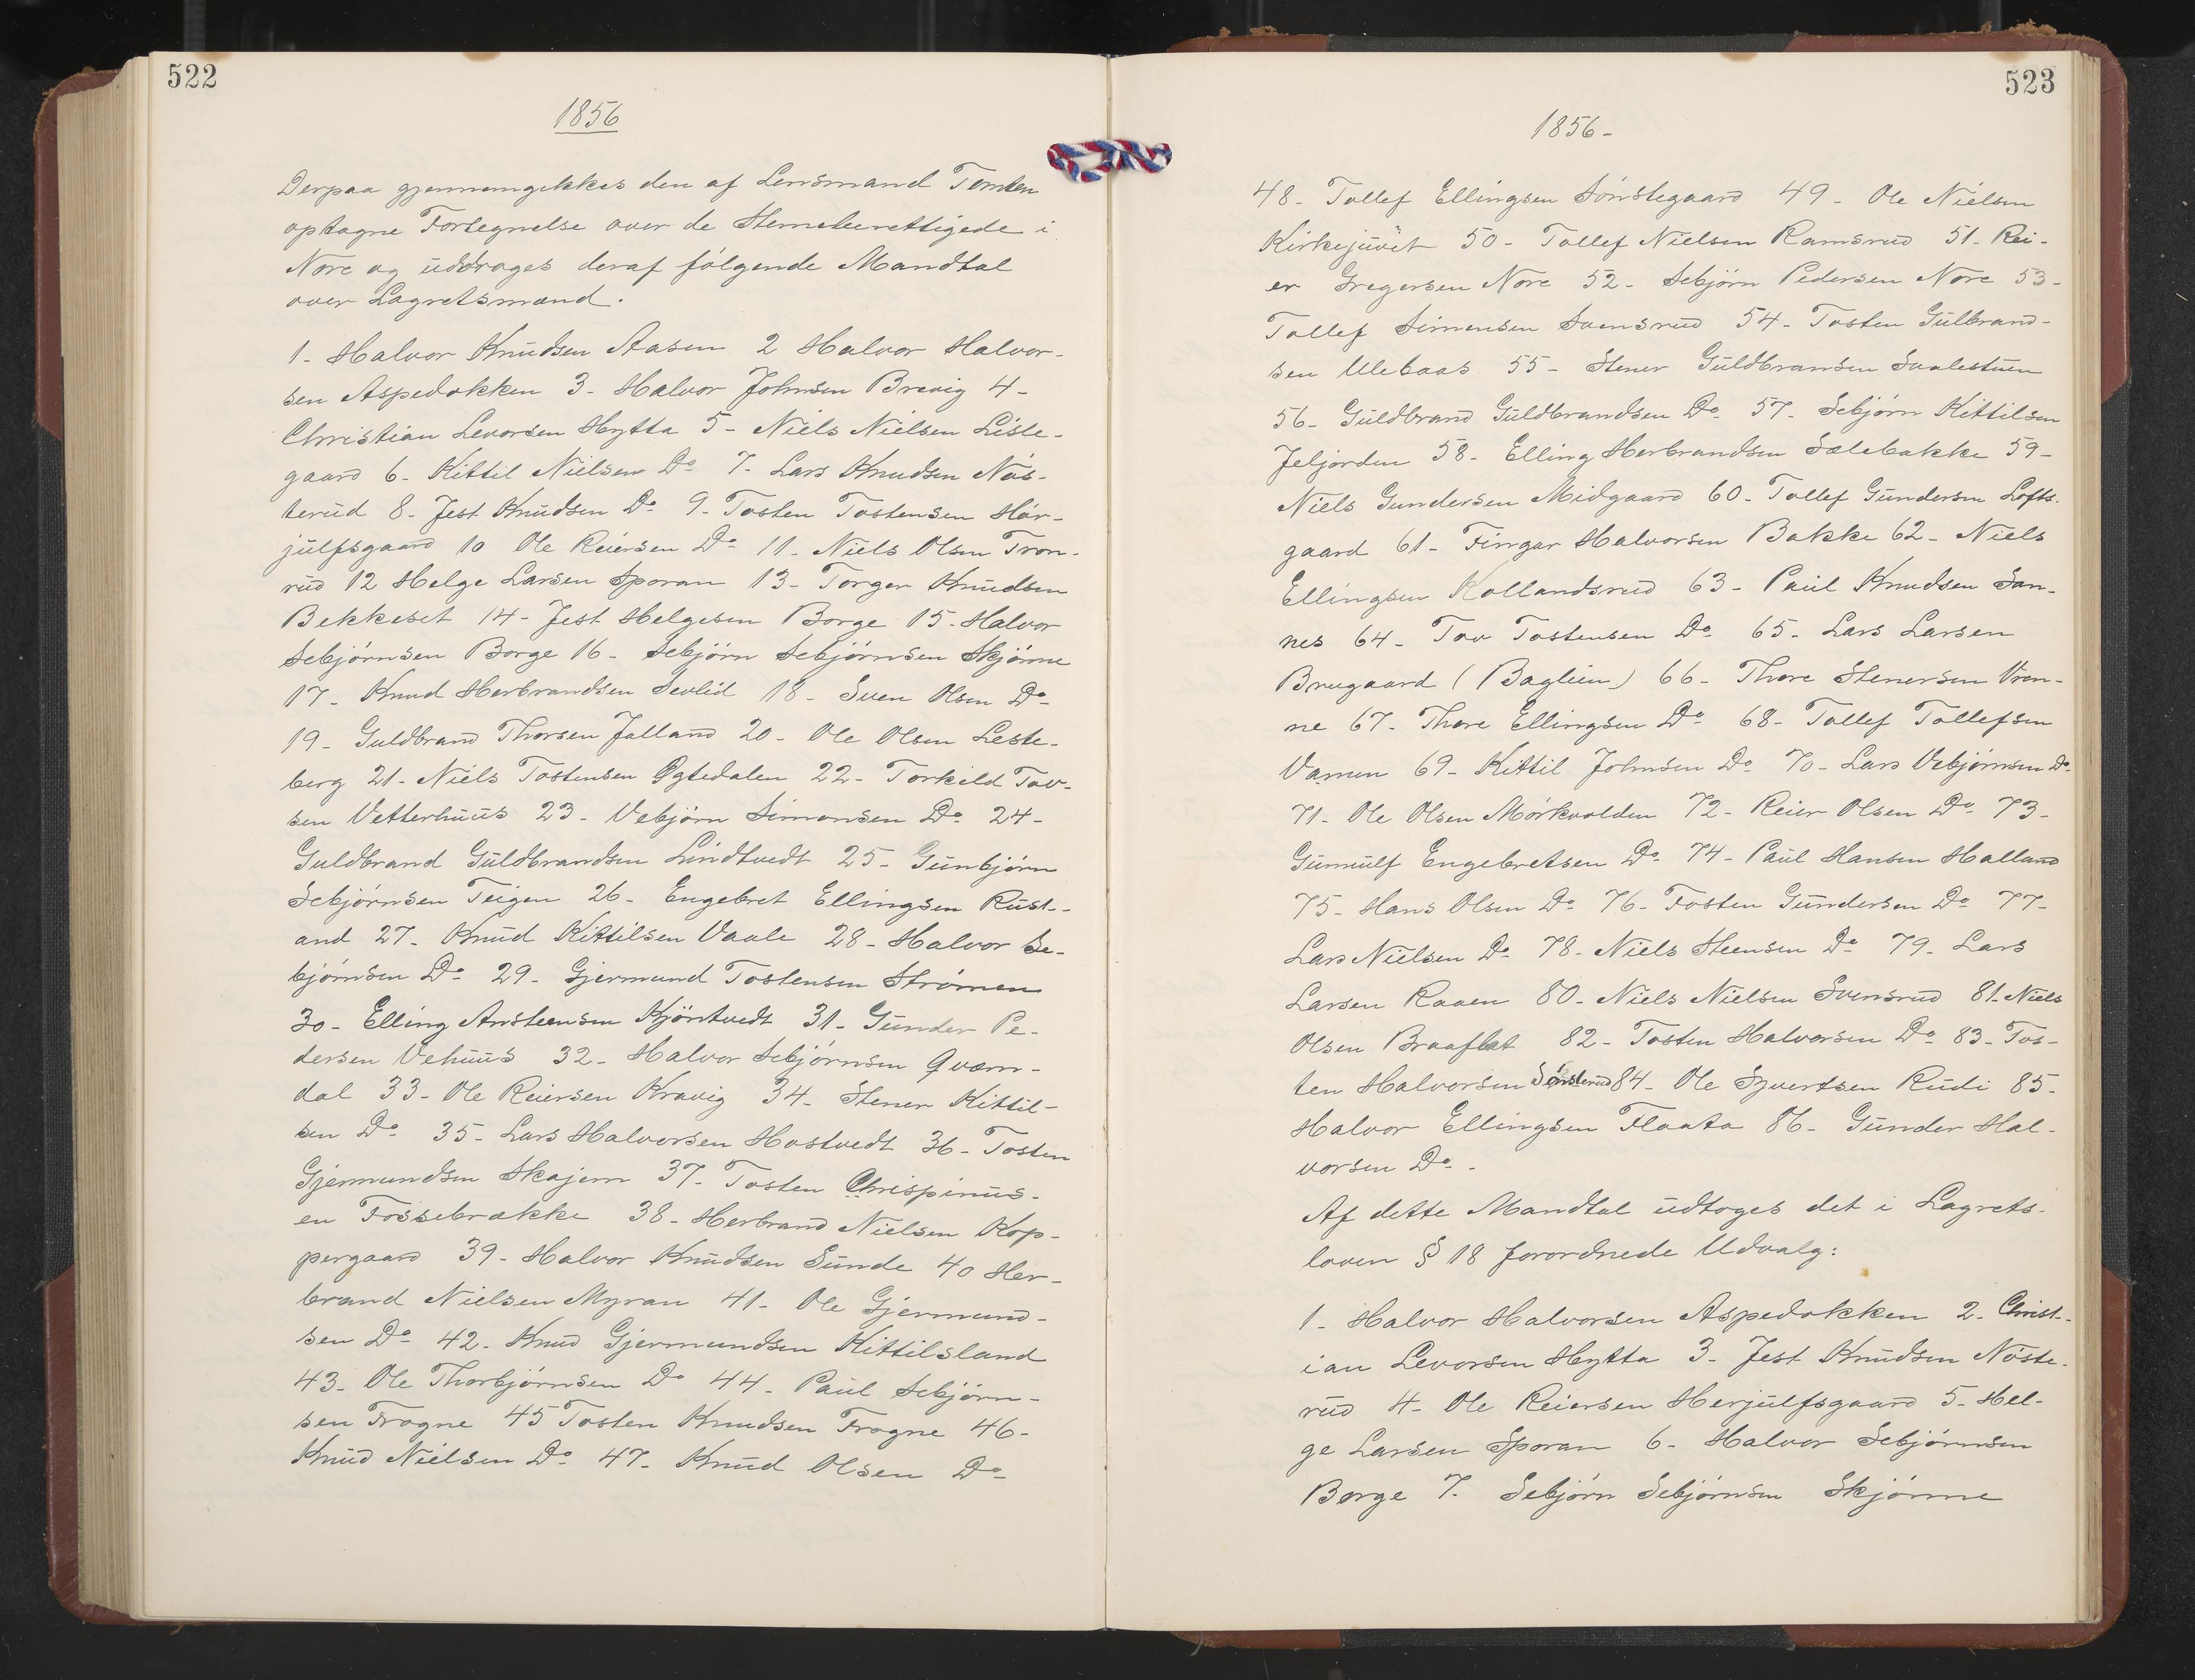 522
1856
Derpaa gjennemgikkes den af Lensmand Tomten
optagne Fortegnelse over de Stemeberettigede i
Nore og uddrages deraf følgende Mandtal
over Lagretsmænd.
1. Halvor Knudsen Aasen 2 Halvor Halvor-
sen Aspedokken 3- Halvor Johnsen Brevig 4-
Christian Levorsen Hytta 5- Niels Nielsen Lisle-
gaard 6. Kittil Nielsen Do 7. Lars Knudsen Nös-
terud 8- Jest Knudsen Do 9. Tosten Tostensen Hör-
julfsgaard 10 Ole Reiersen Do 11- Niels Olsen Tron-
rud 12 Helge Larsen Sporan 13- Torger Knudsen
Bekkeset 14- Jest Helgesen Borge 15- Halvor
Sebjörnsen Borge 16- Sebjörn Sebjörnsen Skjönne
17- Knud Herbrandsen Sevlid 18- Sven Olsen Do
19- Guldbrand Thorsen Jalland 20- Ole Olsen Leste-
berg 21- Niels Tostensen Ögtedalen 22- Torkild Tov-
sen Vetterhuus 23- Vebjörn Simonsen Do 24-
Guldbrand Guldbrandsen Lindtvedt 25- Gunbjörn
Sebjörnsen Teigen 26- Engebret Ellingsen Rust-
and 27- Knud Kittilsen Vaale 28- Halvor Se-
bjørnsen Do 29- Gjermund Tostensen Strömen
30- Elling Ansteensen Kjöntvedt 31- Gunder Pe-
dersen Vehuus 32- Halvor Sebjörnsen Qvær-
dal 33- Ole Reiersen Kravig 34- Stener Kittil-
sen Do 35- Lars Halvorsen Hostvedt 36- Tosten
Gjermundsen Skajem 37. Tosten Chrispinus-
en Fossebrække 38- Herbrand Nielsen Kop-
pergaard 39- Halvor Knudsen Sunde 40 Her-
brand Nielsen Myran 41- Ole Gjermund-
sen Do 42- Knud Gjermundsen Kittilsland
43- Ole Thorbjörnsen Do 44- Paul Sebjörn-
sen Frogne 45 Tosten Knudsen Frogne 46-
Knud Nielsen Do 47- Knud Olsen Do
523
1856-
48- Tollef Ellingsen Sönstegaard 49- Ole Nielsen
Kirkejuvet 50- Tollef Nielsen Ramsrud 51- Rei-
er Gregersen Nore 52- Sebjörn Pedersen Nore 53-
Tollef Simensen Svensrud 54- Tosten Gulbrand-
sen Ulebaas 55- Stener Guldbransen Svalestuen
56- Guldbrand Guldbrandsen Do 57- Sebjörn Kittilsen
Jeljorden 58- Elling Herbrandsen Sælebakke 59-
Niels Gundersen Midgaard 60- Tollef Gundersen Lofts-
gaard 61- Fingar Halvorsen Bakke 62- Niels
Ellingsen Kollandsrud 63- Paul Knudsen San-
nes 64- Tov Tostensen Do 65- Lars Larsen
Brugaard (Baglien) 66- Thore Stenersen Vron-
ne 67- Thore Ellingsen Do 68- Tollef Tollefsen
Vamen 69- Kittil Johnsen Do 70- Lars Vebjörnsen Do
71- Ole Olsen Mörkvolden 72- Reier Olsen Do 73-
Gunnulf Engebretsen Do 74- Paul Hansen Halland
75- Hans Olsen Do 76- Tosten Gundersen Do 77-
Lars Nielsen Do 78- Niels Steensen Do 79- Lars
Larsen Raaen 80- Niels Nielsen Svensrud 81- Niels
Olsen Braaflat 82- Tosten Halvorsen Do 83- Tos-
ten Halvorsen Sönsterud 84- Ole Syvertsen Rudi 85-
Halvor Ellingsen Flaata 86- Gunder Hal-
vorsen Do -
Af dette Mandtal udtoges det i Lagrets-
loven § 18 forordnede Udvalg:
1- Halvor Halvorsen Aspedokken 2- Christ-
ian Levorsen Hytta 3- Jest Knudsen Nöste-
rud 4- Ole Reiersen Herjulfsgaard 5- Hel-
ge Larsen Sporan 6- Halvor Sebjörnsen
Borge 7. Sebjörn Sebjörnsen Skjönne